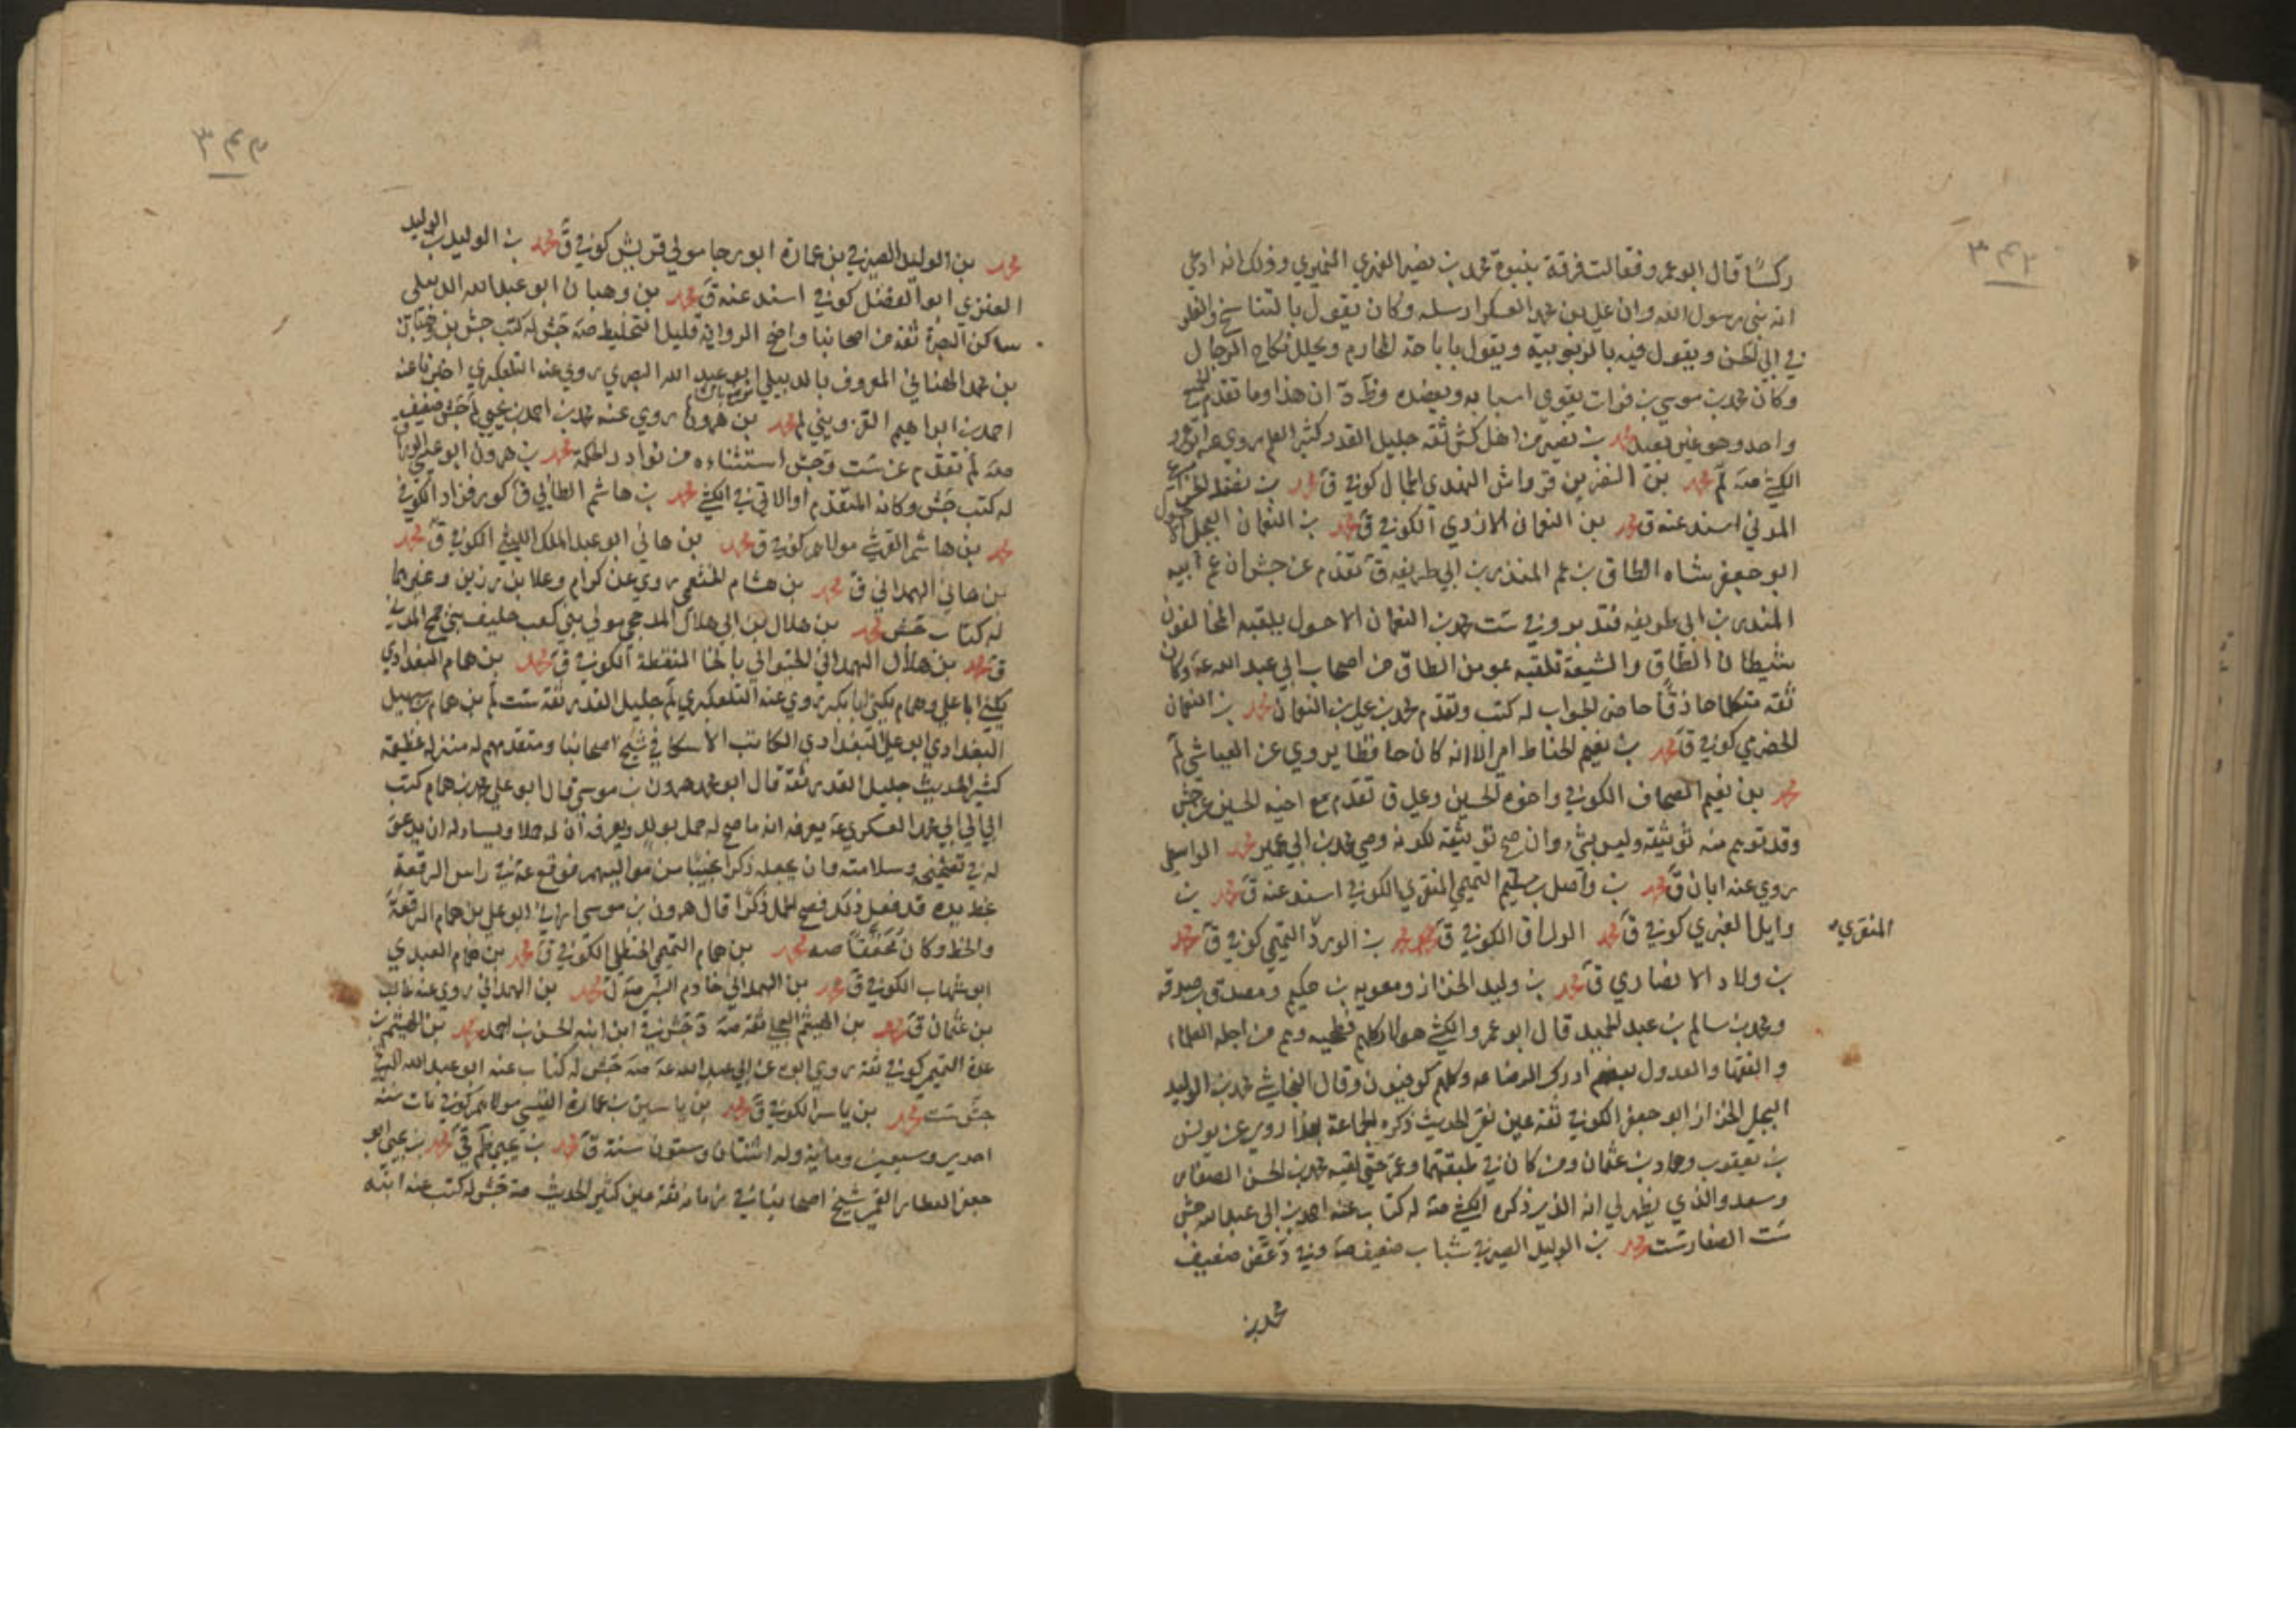 ٣٤٣
ركشا قال ابو عمرو فقالت فرقة بنبوة محمد بن نصير الفهري النميري وذلك انه ادعى
انه نبي رسول الله وان علي بن محمد العسكر ارسله وكان يقول بالتناسخ والغلو
في ابي الحسن ويقول فيه بالربوبية ويقول باباحة المحارم ويحلل نكاح الرجال
وكان محمد بن موسى بن فرات يقوي اسبابه ويعضده وظ ان هذا وما تقدم
واحد وهو غير بعيد محمد بن نصير من اهل كش ثقة جليل القدر كثير العلم روى عنه ابو عمرو
الكشي صه لم محمد بن النضر بن قرواش النهدي الجمال كوفي ق محمد بن
المدني اسند عنه ق محمد بن النعمان الازدي الكوفي ق محمد بن النعمان البجلي الاحول
ابو جعفر شاه الطاق بن عم المنذر بن ابي طريفه ق تقدم عن جش ان عم ابيه
المنذر بن ابي طريفه فتدبر وفي ست محمد بن النعمان الاحول يلقبه المخالفون
بشيطان الطاق والشيعة تلقبه بمومن الطاق من اصحاب ابي عبد الله عه وكان
ثقه متكلما حاذقا حاضر الجواب له كتب وتقدم محمد بن علي بن النعمان محمد بن النعمان
الحضرمي كوفي ق محمد بن نعيم الخياط امي الا انه كان حافظا يروي عن العياشي لم
محمد بن نعيم الصحاف الكوفي واخوه الحسين وعلي ق تقدم مع اخيه الحسين عن جش
وقد توهم منه توثيقه وليس بشيء وان صح توثيقه لكونه وصي محمد بن ابي عمير محمد الواسطي
روى عنه ابان ق محمد بن واصل بن سليم التميمي المنقري الكوفي اسند عنه ق محمد بن
وايل العنبري كوفي ق محمد الوراق الكوفي ق محمد بن الورد التميمي كوفي ق محمد
المنقري
بن ولاد الانصاري ق محمد بن وليد الخزاز ومعويه بن حكيم ومصدق بن صدقه
ومحمد بن سالم بن عبد الحميد قال ابو عمرو الكشي هولاء كلهم فطحيه وهم من اجله العلماء
والفقها والعدول بعضهم ادرك الرضا عه وكلهم كوفيون وقال النجاشي محمد بن الوليد
البجلي الخزاز ابو جعفر الكوفي ثقه عين نقي الحديث ذكره الجماعة بهذا روى عن يونس
بن يعقوب وحماد بن عثمان ومن كان في طبقتهما وعمر حتى لقيه محمد بن الحسن الصفار
وسعد والذي يظهر لي انه الذي ذكره الكشي صه له كتاب عنه احمد بن ابي عبد الله جش
ست الصفار ست محمد بن الوليد الصيرفي شباب ضعيف صه وفي د غض ضعيف
محمد بن
٣٤٤
محمد بن الوليد الصيرفي بن عمارة ابو رجا مولى قريش كوفي ق محمد بن الوليد بن الوليد
العنزي ابو الفضل كوفي اسند عنه ق محمد بن وهبان ابو عبد الله الدبيلي
ساكن البصرة ثقه من اصحابنا واضح الرواية قليل التخليط صه جش له كتب جش بن وهبان
بن محمد الهنائي المعروف بالدبيلي ابو عبد الله البصري روى عنه التلعكبري اخبرنا عنه
احمد بن ابراهيم القزويني لم محمد بن هرون روى عنه محمد بن احمد بن يحيى لم جش ضعيف
صه لم تقدم عن ست وجش استثناءه من نوادر الحكمة محمد بن هرون ابو عيسى الوراق
له كتب جش وكانه المتقدم او الاتي في الكشي محمد بن هاشم الطائي ق كوفي
محمد بن هاشم القرشي مولاهم كوفي ق محمد بن هاني ابو عبد الملك الليثي الكوفي ق محمد
بن هاني الهمداني ق محمد بن هشام الخثعمي روى عن كرام وعلا بن رزين وغيرهما
له كتاب جش محمد بن هلال بن ابي هلال المدحجي مولى بني كعب حليف بني جمح المدني
ق محمد بن هلال الهمداني الخيواني بالخا المنقطة الكوفي ق محمد بن همام البغدادي
يكنى ابا علي وهمام يكنى ابا بكر روى عنه التلعكبري لم جليل القدر ثقه ست لم بن همام بن سهيل
البغدادي ابو علي البغدادي الكاتب الاسكافي شيخ اصحابنا ومتقدمهم له منزله عظيمة
كثير الحديث جليل القدر ثقة قال ابو محمد هرون بن موسى قال ابو علي محمد بن همام كتب
ابي الى ابي محمد العسكري عه يعرفه انه ما صح له حمل بولد ويعرفه ان له حملا ويساله ان يدعو
له في تصحيحه وسلامته وان يجعله ذكرا نجيبا من مواليهم فوقع عه في راس الرقعة
بخط يده قد فعل ذلك فصح الحمل ذكرا قال هرون بن موسى اراني ابو علي بن همام الرقعة
والخط وكان محققا صه محمد بن همام التميمي الحنظلي الكوفي ق محمد بن همام العبدي
ابو شهاب الكوفي ق محمد بن الهمداني خادم الرضا عه محمد بن الهمداني روى عنه
بن عثمان ق محمد بن الهيثم العجلي ثقة صه د جش في ابن ابنه الحسن بن احمد محمد بن الهيثم بن
عروة التميمي كوفي ثقه روى ابوه عن ابي عبد الله عه صه جش له كتاب عنه ابو عبد الله البرقي
جش ست محمد بن ياسر الكوفي ق محمد بن ياسين بن عمارة القيسي مولاهم كوفي مات سنه
احدى وسبعين ومائة وله اثنتان وستون سنة ق محمد بن يحيى لم في ق محمد بن يحيى ابو
جعفر العطار القمي شيخ اصحابنا في زمانه ثقة عين كثير الحديث صه جش له كتب عنه ابنه